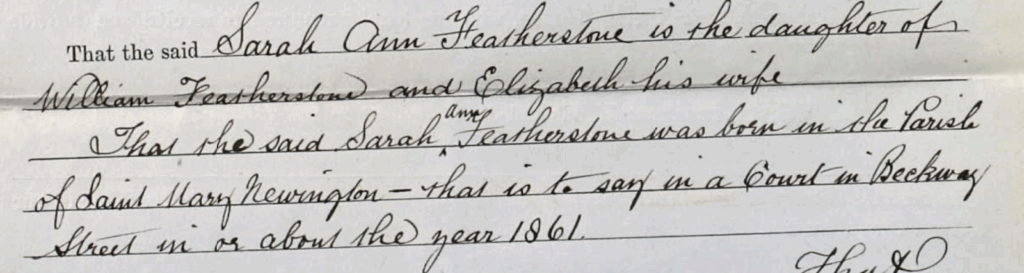 That the said Sarah Ann Featherstone is the daughter of
William Featherstone and Elizabeth his wife
That the said Sarah Ann Featherstone was born in the Parish
of Saint Mary Newington – that is to say in a Court in Beckway
Street in or about the year 1861.